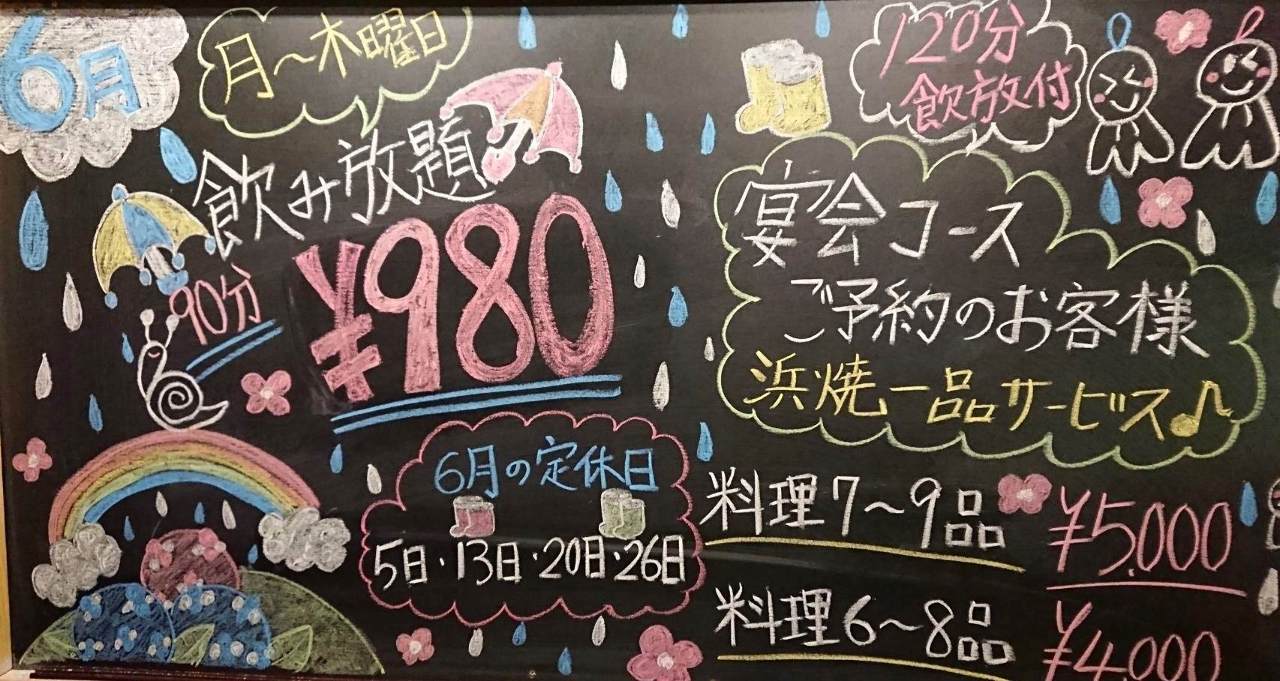 6月
月〜木曜日
飲み放題
90分
¥980
6月の定休日
5日・13日・20日・26日
120分
飲放付
宴会コース
ご予約のお客様
浜焼一品サービス♪
料理7〜9品
¥5,000
料理6〜8品
¥4,000